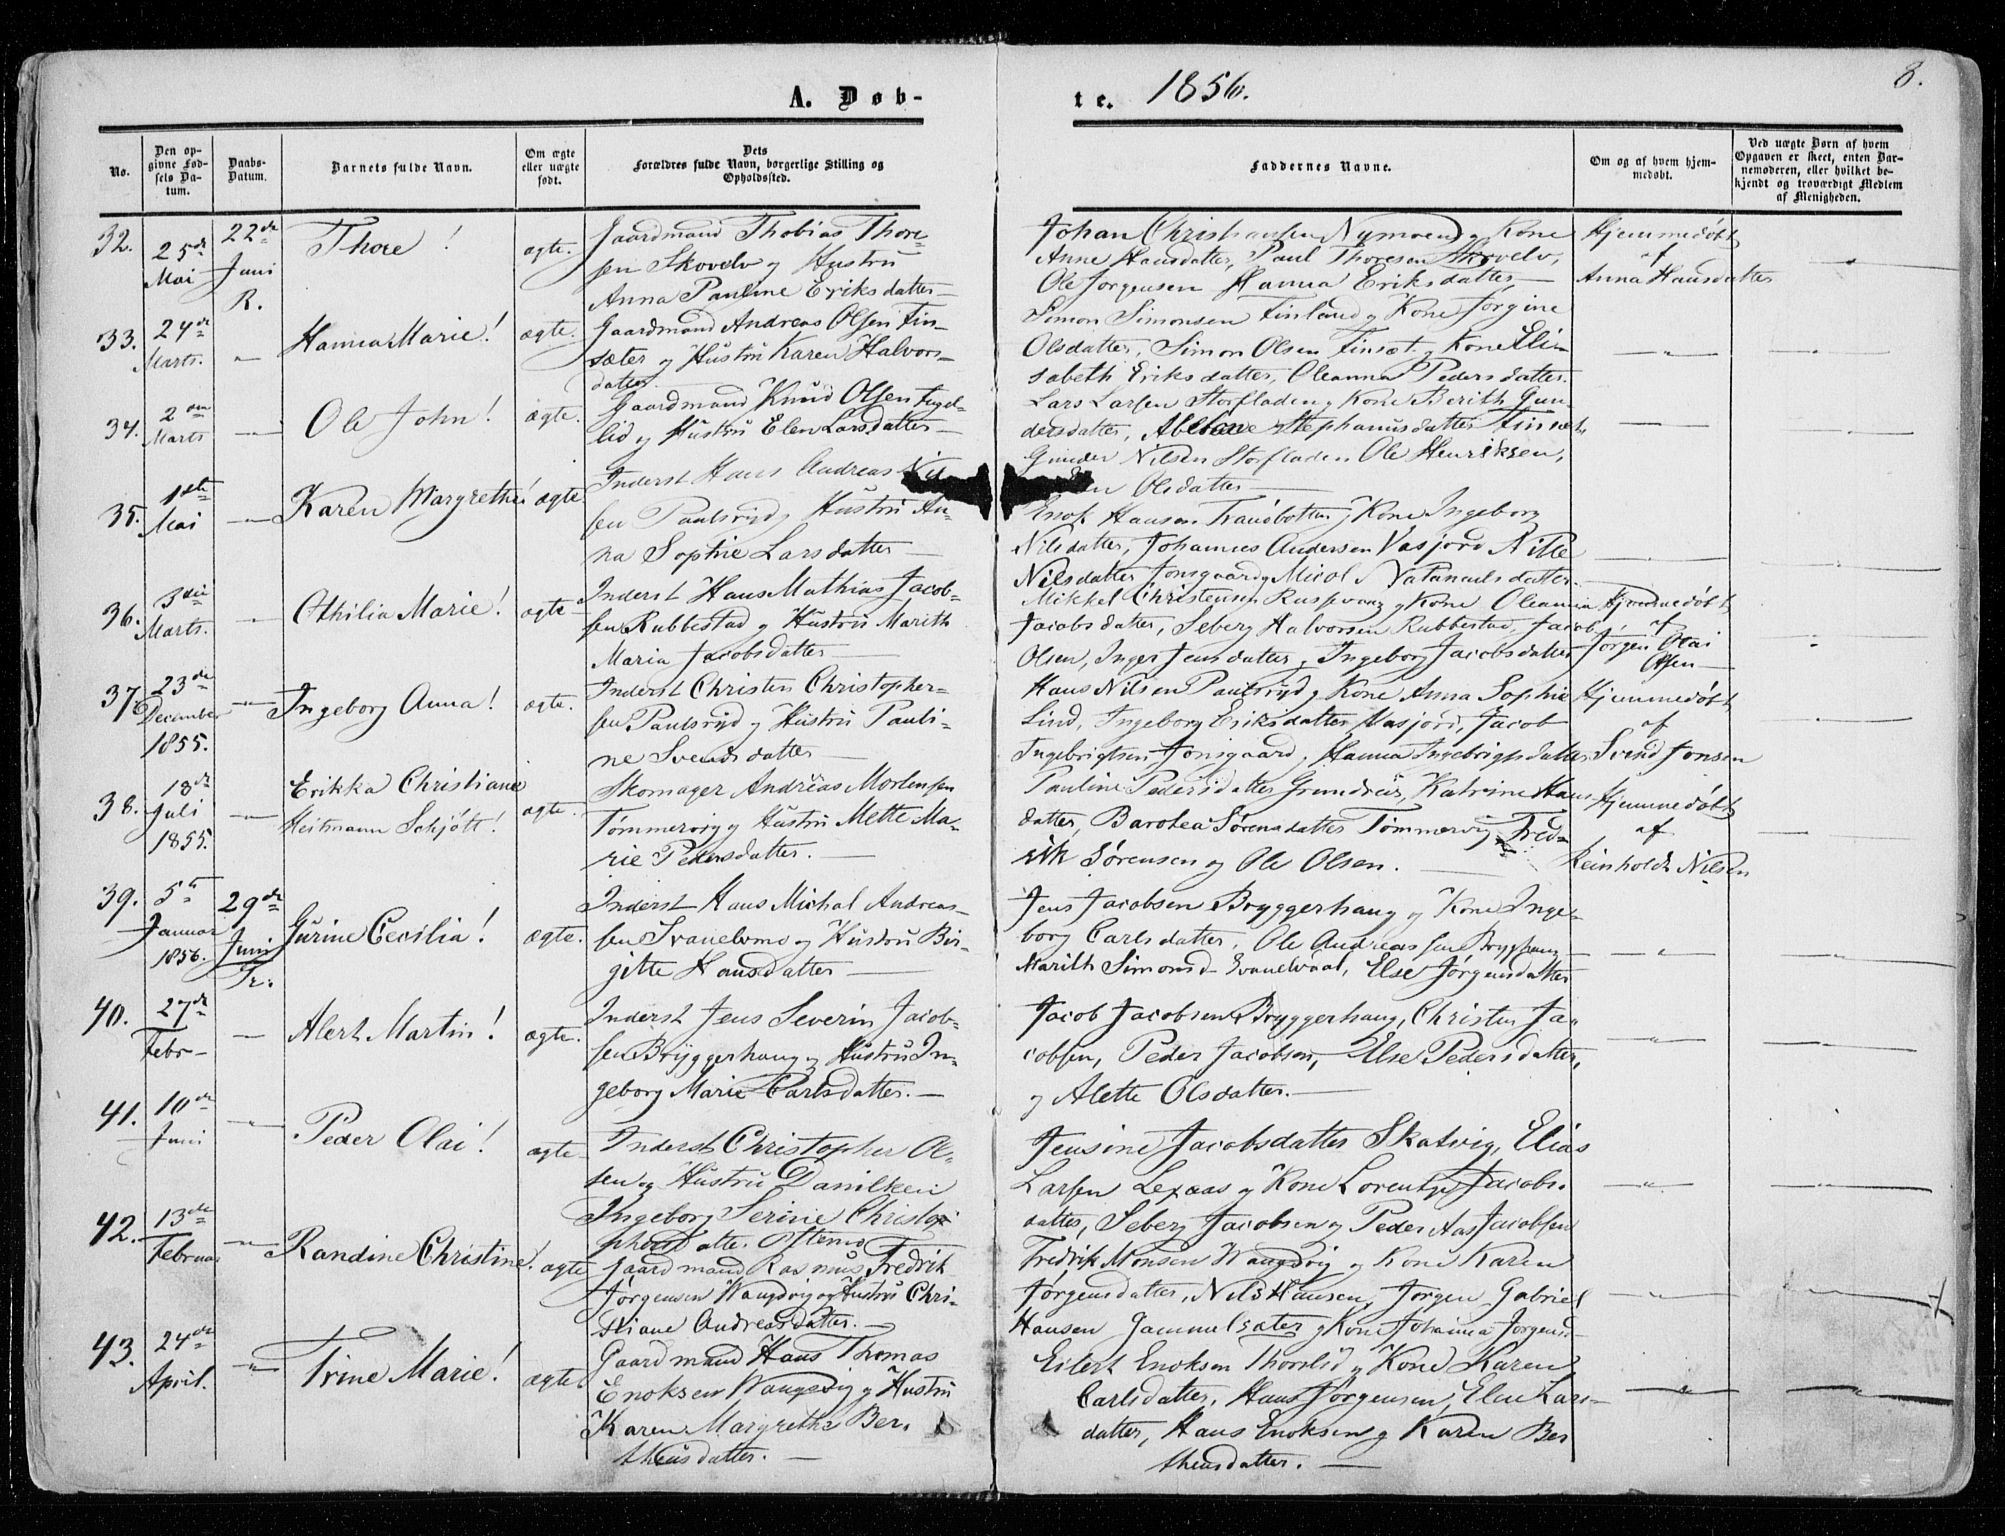 A. Døb-
te. 1856.
8.
No.
Den opgivne Fødsels Datum.
Daabs-Datum.
Barnets fulde Navn.
Om ægte eller uægte født.
Dets Forældres fulde Navn, borgerlige Stilling og Opholdssted.
Faddernes Navne.
Om og af hvem hjemmedøbt.
Ved uægte Børn af hvem Opgaven er skeet, enten Barnemoderen, eller hvilket bekjendt og troværdigt Medlem af Menigheden.
32. 25de Mai 22de Juni R. Thore! ægte.
Gaardmand Thobias Thore-
sen Skovelv og Hustru
Anna Pauline Eriksdatter
Johan Christiansen Nymoen og Kone
Anne Hansdatter, Paul Thoresen Skovelv,
Ole Jørgensen Hanna Eriksdatter
Hjemmedøbt
af
Anna Hansdatter
33. 24de Marts. " Hanna Marie! ægte.
Gaardmand Andreas Olsen Fin-
sæter og Hustru Karen Halvors-
datter
Simon Simonsen Finland og Kone Jørgine
Olsdatter, Simon Olsen Finsæt. og Kone Eli-
sabeth Eriksdatter, Oleanna Pedersdatter.
34. 2den Marts Ole John! ægte.
Gaardmand Knud Olsen Fugel-
lid og Hustru Elen Larsdatter
Lars Larsen Storfladen og Kone Berith Gun-
dersdatter, Stephanusdatter Finsæt
Gunder Nilsen Storfladen Ole Henriksen,
Olsdatter
35. 1ste Mai Karen Margrethe! ægte
Inderst Hans Andreas Nil-
sen Paulsryd og Hustru An-
na Sophie Larsdatter
Enok Hansen Tranbotten og Kone Ingeborg
Nilsdatter, Johannes Andersen Vasjord Nille
Nilsdatter Jonsgaard og Micol Natanaelsdatter.
36. 3die Marts. Othilia Marie! ægte
Inderst Hans Mathias Jacob-
sen Rubbestad og Hustru Marith
Maria Jacobsdatter
Mikkel Christensen og Kone Oleanna
Jacobsdatter, Seberg Halvorsen Rubbestad, Jacob
Olsen, Inger Jensdatter, Ingeborg Jacobsdatter
Hjemmedøbt
af
Jørgen Olai
Olsen
37. 23de December 1855. Ingeborg Anna! ægte.
Inderst Christen Christopher-
sen Paulsryd og Hustru Pauli-
ne Svendsdatter
Hans Nilsen Paulsryd og Kone Anna Sophie
Lind, Ingeborg Eriksdatter Vasjord, Jacob
Ingebrigtsen Jonsgaard, Hanna Ingebrigtsdatter
Hjemmedøbt
af
Svend Jonsen
38. 18de Juli 1855. Erikka Christiane
Heitmann Schjött! ægte.
Skomager Andreas Mortensen
Tømmervig og Hustru Mette Ma-
rie Pedersdatter.
Pauline Pedersdatter Grundvig, Katrine Hans
datter, Barolea Sørensdatter Tømmervig, Fred-
rik Sørensen og Ole Olsen.
Hjemmedøbt
af
Reinholdt Nilsen
39. 5te Januar 1856. 29de Juni Tr. Gurine Cecilia! ægte.
Inderst Hans Michal Andreas-
sen Svanelvmo og Hustru Bir-
gitte Hansdatter
Jens Jacobsen Bryggerhaug og Kone Inge-
borg Carlsdatter, Ole Andreassen Brygghaug
Marith Simonsd- Svanelvdal, Else Jørgensdatter
40. 27de Febr- Alert Martin! ægte.
Inderst Jens Severin Jacob-
sen Bryggerhaug og Hustru In-
geborg Marie Carlsdatter.
Jacob Jacobsen Bryggerhaug, Christen Ja-
cobsen, Peder Jacobsen, Else Pedersdatter,
og Alette Olsdatter.
41. 10de Juni Peder Olai! ægte
Inderst Christopher Ol-
sen og Hustru Danilken
Ingeborg Serine Christo-
phersdatter Oftemo
Jensine Jacobsdatter Skatvig, Elias
Larsen Lexaas og Kone Lorentze Jacobs-
datter, Seberg Jacobsen og Peder Aas Jacobsen
42. 13de Februar Randine Christine! ægte
Gaardmand Rasmus Fredrik
Jørgensen Wangsvig og Hustru Chri-
stiane Andreasdatter.
Fredrik Monsen Wangsvig og Kone Karen
Jørgensdatter, Nils Hansen, Jørgen Gabriel
Hansen Gammelsæter og Kone Johanna Jørgensd-
43. 24de April. Trine Marie! ægte
Gaardmand Hans Thomas
Enoksen Wangsvig og Hustru
Karen Margrethe Ber-
theusdatter.
Eilert Enoksen Thornlid og Kone Karen
Carlsdatter, Hans Jørgensen, Elen Lars-
datter, Hans Enoksen og Karen Ber
theusdatter.